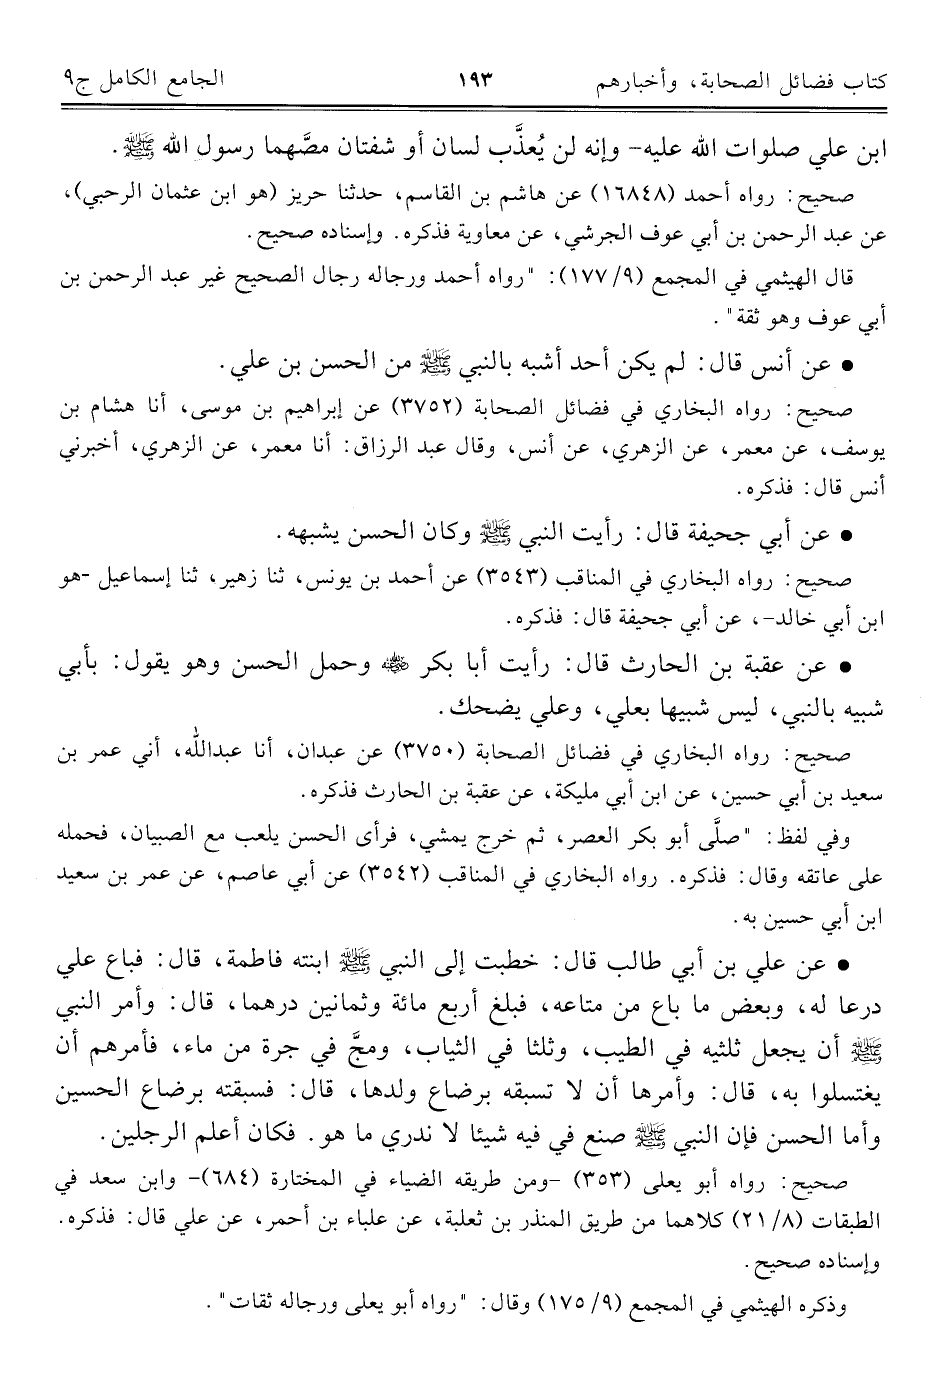 كتاب فضائل الصحابة، وأخبارهم ١٩٣ الجامع الكامل ج٩
ابن علي صلوات الله عليه- وإنه لن يُعذَّب لسان أو شفتان مصَّهما رسول الله ﷺ.
صحيح: رواه أحمد (١٦٨٤٨) عن هاشم بن القاسم، حدثنا حريز (هو ابن عثمان الرحبي)،
عن عبد الرحمن بن أبي عوف الجرشي، عن معاوية فذكره. وإسناده صحيح.
قال الهيثمي في المجمع (٩/ ١٧٧): "رواه أحمد ورجاله رجال الصحيح غير عبد الرحمن بن
أبي عوف وهو ثقة".
• عن أنس قال: لم يكن أحد أشبه بالنبي ﷺ من الحسن بن علي.
صحيح: رواه البخاري في فضائل الصحابة (٣٧٥٢) عن إبراهيم بن موسى، أنا هشام بن
يوسف، عن معمر، عن الزهري، عن أنس، وقال عبد الرزاق: أنا معمر، عن الزهري، أخبرني
أنس قال: فذكره.
• عن أبي جحيفة قال: رأيت النبي ﷺ وكان الحسن يشبهه.
صحيح: رواه البخاري في المناقب (٣٥٤٣) عن أحمد بن يونس، ثنا زهير، ثنا إسماعيل -هو
ابن أبي خالد-، عن أبي جحيفة قال: فذكره.
• عن عقبة بن الحارث قال: رأيت أبا بكر ﵁ وحمل الحسن وهو يقول: بأبي
شبيه بالنبي، ليس شبيها بعلي، وعلي يضحك.
صحيح: رواه البخاري في فضائل الصحابة (٣٧٥٠) عن عبدان، أنا عبدالله، أني عمر بن
سعيد بن أبي حسين، عن ابن أبي مليكة، عن عقبة بن الحارث فذكره.
وفي لفظ: "صلَّى أبو بكر العصر، ثم خرج يمشي، فرأى الحسن يلعب مع الصبيان، فحمله
على عاتقه وقال: فذكره. رواه البخاري في المناقب (٣٥٤٢) عن أبي عاصم، عن عمر بن سعيد
ابن أبي حسين به.
• عن علي بن أبي طالب قال: خطبت إلى النبي ﷺ ابنته فاطمة، قال: فباع علي
درعا له، وبعض ما باع من متاعه، فبلغ أربع مائة وثمانين درهما، قال: وأمر النبي
ﷺ أن يجعل ثلثيه في الطيب، وثلثا في الثياب، ومجَّ في جرة من ماء، فأمرهم أن
يغتسلوا به، قال: وأمرها أن لا تسبقه برضاع ولدها، قال: فسبقته برضاع الحسين
وأما الحسن فإن النبي ﷺ صنع في فيه شيئا لا ندري ما هو. فكان أعلم الرجلين.
صحيح: رواه أبو يعلى (٣٥٣) -ومن طريقه الضياء في المختارة (٦٨٤)- وابن سعد في
الطبقات (٨/ ٢١) كلاهما من طريق المنذر بن ثعلبة، عن علباء بن أحمر، عن علي قال: فذكره.
وإسناده صحيح.
وذكره الهيثمي في المجمع (٩/ ١٧٥) وقال: "رواه أبو يعلى ورجاله ثقات".